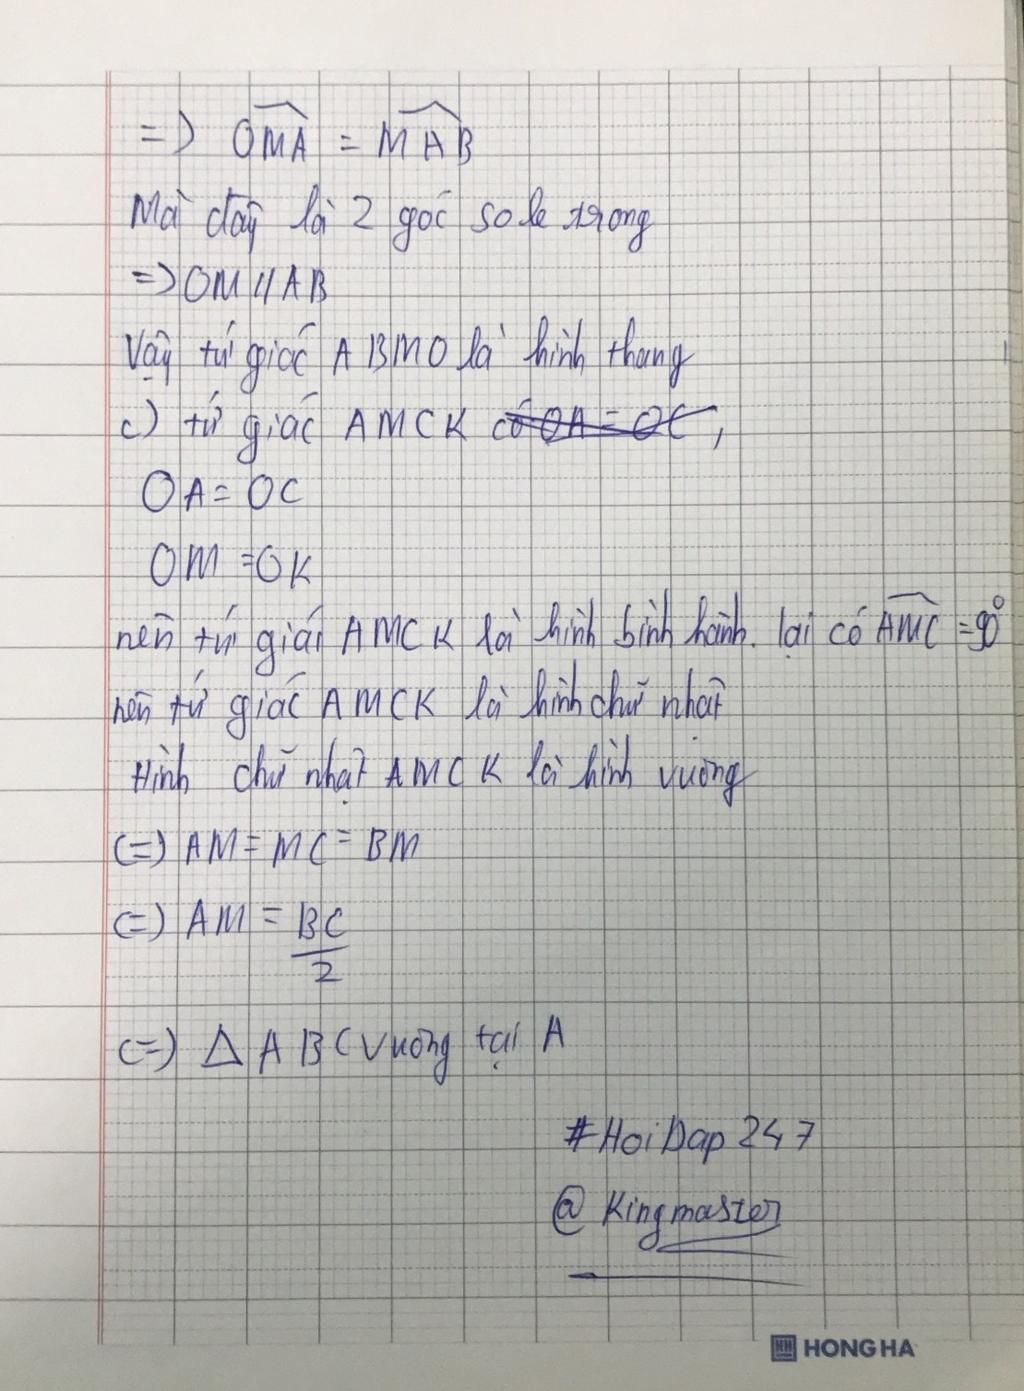 => OMA = MAB
Mà đây là 2 góc so le trong
=> OM // AB
Vậy tứ giác ABMO là hình thang
c) tứ giác AMCK có OA = OC,
OA = OC
OM = OK
nên tứ giác AMCK là hình bình hành. lại có AMC = 90°
nên tứ giác AMCK là hình chữ nhật
Hình chữ nhật AMCK là hình vuông
(=) AM = MC = BM
(=) AM = BC/2
(=) Δ ABC vuông tại A
#HoiDap247
@Kingmaster
HH HONG HA